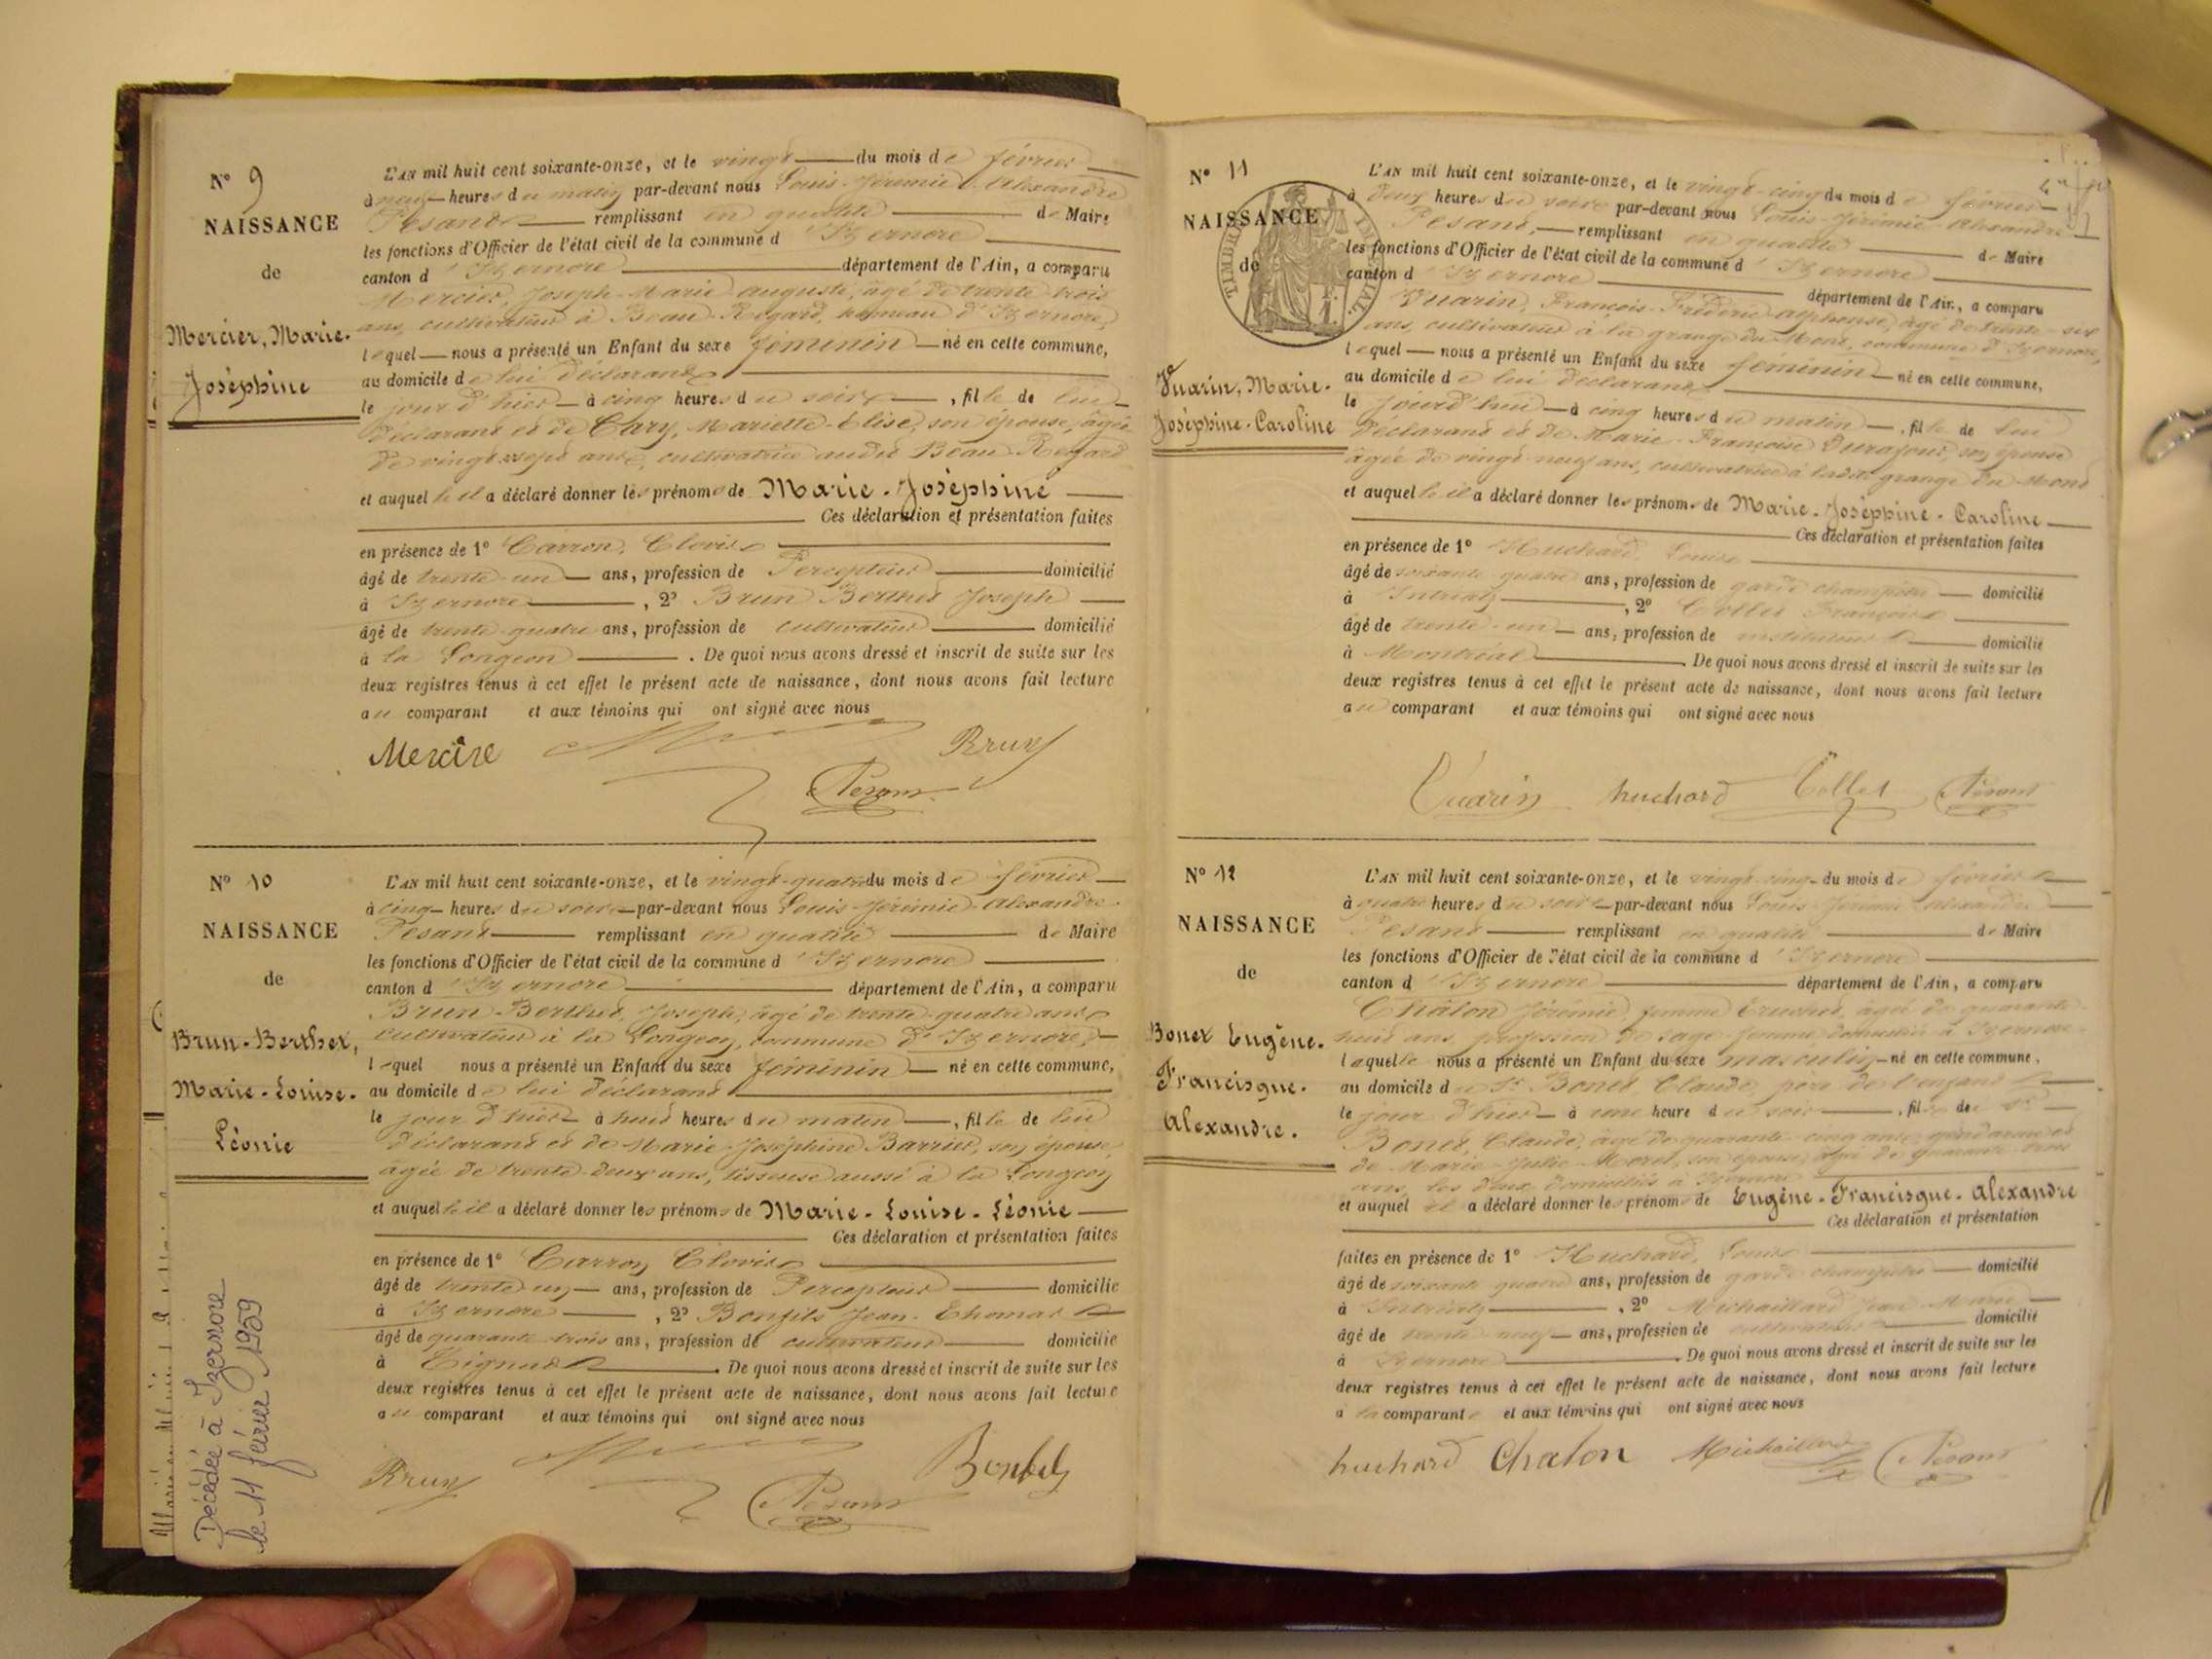 N° 9
NAISSANCE
de
Mercier, Marie-
Joséphine
L'AN mil huit cent soixante-onze, et le vingt du mois de février
à neuf heures du matin par-devant nous Louis-Jérémie-Alexandre
Pesant remplissant en qualité de Maire
les fonctions d'Officier de l'état civil de la commune d'Izernore
canton d'Izernore département de l'Ain, a comparu
Mercier, Joseph-Marie-Auguste, âgé de trente-trois
ans, cultivateur à Beau-Regard, hameau d'Izernore,
lequel nous a présenté un Enfant du sexe féminin né en cette commune,
au domicile de lui déclarant
le jour d'hier à cinq heures du soir, fille de lui
déclarant et de Cary, Mariette-Élise, son épouse, âgée
de vingt-sept ans, cultivatrice audit Beau-Regard
et auquel le il a déclaré donner les prénoms de Marie-Joséphine
Ces déclaration et présentation faites
en présence de 1° Carron, Clovis
âgé de trente-un ans, profession de Percepteur domicilié
à Izernore, 2° Brun Berthet Joseph
âgé de trente-quatre ans, profession de cultivateur domicilié
à la Longeon. De quoi nous avons dressé et inscrit de suite sur les
deux registres tenus à cet effet le présent acte de naissance, dont nous avons fait lecture
au comparant et aux témoins qui ont signé avec nous
Mercire Brun
Pesant
N° 10
NAISSANCE
de
Brun-Berthet,
Marie-Louise-
Léonie
L'AN mil huit cent soixante-onze, et le vingt-quatre du mois de février
à cinq heures du soir par-devant nous Louis-Jérémie-Alexandre
Pesant remplissant en qualité de Maire
les fonctions d'Officier de l'état civil de la commune d'Izernore
canton d'Izernore département de l'Ain, a comparu
Brun-Berthet, Joseph, âgé de trente-quatre ans
cultivateur à la Longeon, commune d'Izernore,
lequel nous a présenté un Enfant du sexe féminin né en cette commune,
au domicile de lui déclarant
le jour d'hier à huit heures du matin, fille de lui
déclarant et de Marie-Joséphine Barrier, son épouse,
âgée de trente-deux ans, tisseuse aussi à la Longeon
et auquel le il a déclaré donner les prénoms de Marie-Louise-Léonie
Ces déclaration et présentation faites
en présence de 1° Carron Clovis
âgé de trente-un ans, profession de Percepteur domicilié
à Izernore, 2° Bonfils Jean-Thomas
âgé de quarante-trois ans, profession de cultivateur domicilié
à Tignat. De quoi nous avons dressé et inscrit de suite sur les
deux registres tenus à cet effet le présent acte de naissance, dont nous avons fait lecture
au comparant et aux témoins qui ont signé avec nous
Brun Bonfils
Pesant
Décédée à Izernore
le 11 février 1959
N° 11
NAISSANCE
de
TIMBRE IMPÉRIAL
Vuarin, Marie-
Joséphine-Caroline
L'AN mil huit cent soixante-onze, et le vingt-cinq du mois de février
à deux heures du soir par-devant nous Louis-Jérémie-Alexandre
Pesant, remplissant en qualité de Maire
les fonctions d'Officier de l'état civil de la commune d'Izernore
canton d'Izernore département de l'Ain, a comparu
Vuarin, François-Frédéric-Alphonse, âgé de trente-six
ans, cultivateur à la grange du Mont, commune d'Izernore,
lequel nous a présenté un Enfant du sexe féminin né en cette commune,
au domicile de lui déclarant
le jourd'hui à cinq heures du matin, fille de lui
déclarant et de Marie-Françoise Durafour, son épouse
âgée de vingt-neuf ans, cultivatrice à ladite grange du Mont
et auquel le il a déclaré donner les prénoms de Marie-Joséphine-Caroline
Ces déclaration et présentation faites
en présence de 1° Huchard Louis
âgé de soixante-quatre ans, profession de garde champêtre domicilié
à Intriat, 2° Collet François
âgé de trente-un ans, profession de instituteur domicilié
à Montréal. De quoi nous avons dressé et inscrit de suite sur les
deux registres tenus à cet effet le présent acte de naissance, dont nous avons fait lecture
au comparant et aux témoins qui ont signé avec nous
Vuarin huchard Collet Pesant
N° 12
NAISSANCE
de
Bonet Eugène-
Francisque-
Alexandre.
L'AN mil huit cent soixante-onze, et le vingt-cinq du mois de février
à quatre heures du soir par-devant nous Louis-Jérémie-Alexandre
Pesant remplissant en qualité de Maire
les fonctions d'Officier de l'état civil de la commune d'Izernore
canton d'Izernore département de l'Ain, a comparu
Châlon Jérémie, femme âgée de quarante-
huit ans, profession de sage-femme, domiciliée à Izernore
laquelle nous a présenté un Enfant du sexe masculin né en cette commune,
au domicile de Sr Bonet, Claude, père de l'enfant
le jour d'hier à une heure du soir, fils de Sr
Bonet, Claude, âgé de quarante-cinq ans, gendarme et
de Marie-Julie Morel, son épouse, âgée de quarante-trois
ans, les deux domiciliés à Izernore
et auquel il a déclaré donner les prénoms de Eugène-Francisque-Alexandre
Ces déclaration et présentation
faites en présence de 1° Huchard, Louis
âgé de soixante-quatre ans, profession de garde champêtre domicilié
à Intriat, 2° Michaillard Jean-Marie
âgé de trente-neuf ans, profession de cultivateur domicilié
à Izernore. De quoi nous avons dressé et inscrit de suite sur les
deux registres tenus à cet effet le présent acte de naissance, dont nous avons fait lecture
à la comparante et aux témoins qui ont signé avec nous
huchard Chalon Michaillard Pesant